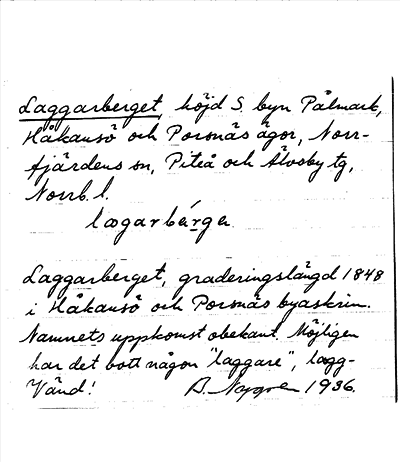 Laggarberget, höjd S. byn Pålmark,
Håkansö och Porsnäs ägor, Norr-
fjärdens sn, Piteå och Älvsby tg,
Norrb. l.
Laggarberget, graderingslängd 1848
i Håkansö och Porsnäs byaskrin.
Namnets uppkomst obekant. Möjligen
har det bott någon "laggare", lagg-
Vänd! A. Nygren 1936.